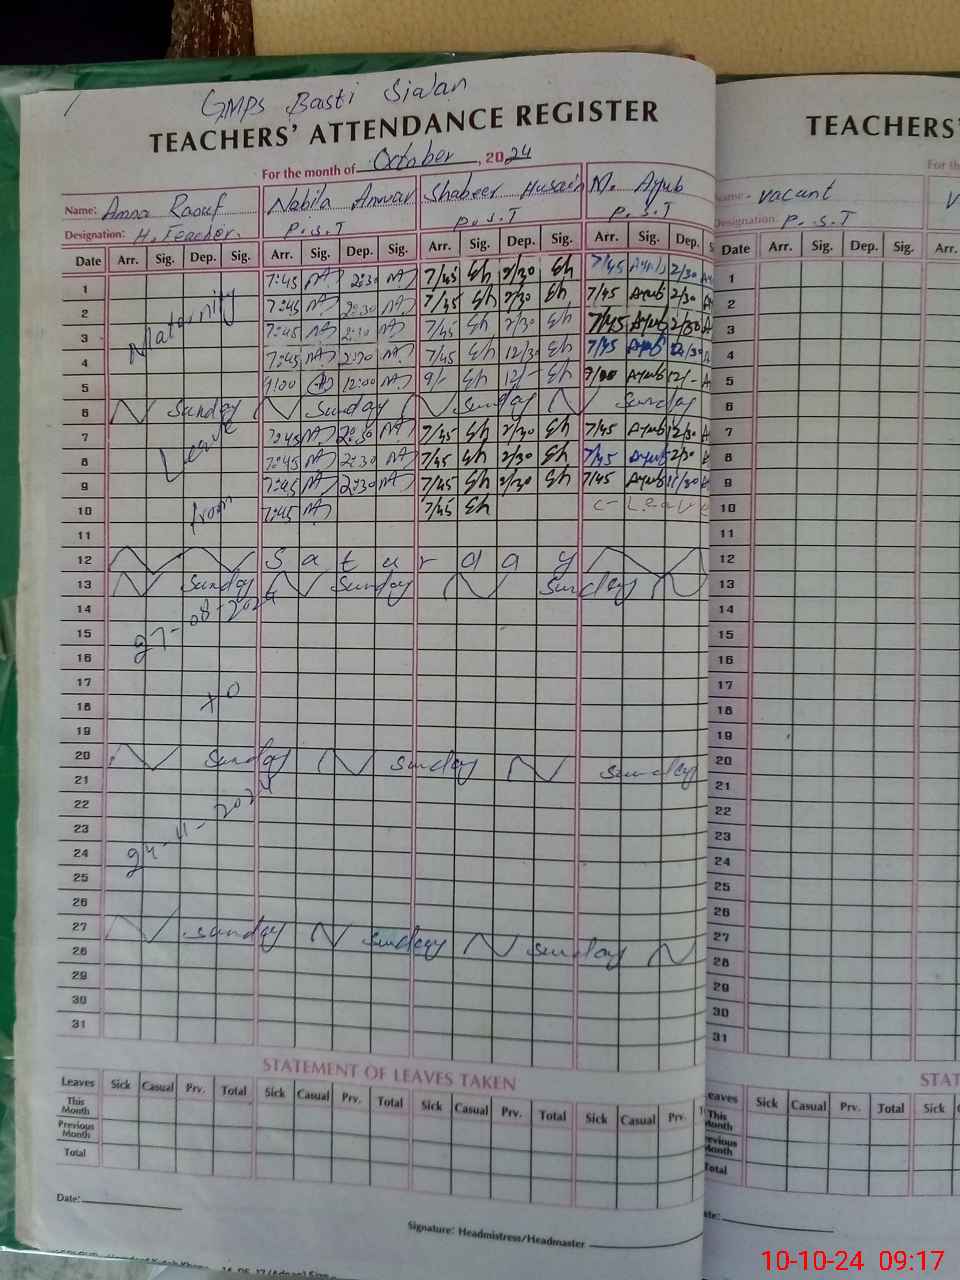 GMPS Basti Sialan
TEACHERS' ATTENDANCE REGISTER
For the month of October, 2024
Name: Amna Raouf Nabila Anwar Shabeer Husain M. Ayub
Designation: H. Teacher. P.S.T P.S.T P.S.T
Date Arr. Sig. Dep. Sig. Arr. Sig. Dep. Sig. Arr. Sig. Dep. Sig. Arr. Sig. Dep.
1 7:45 2:30 7/45 2/30 7/45 Ayub 2/30
2 7:45 2:30 7/45 2/30 7/45 Ayub 2/30
3 7:45 2:30 7/45 2/30 7/45 Ayub 2/30
4 7:45 7/45 12/30 7/45 Ayub 12/30
5 9:00 12:00 9/- 12/- Ayub 12/-
6 Sunday Sunday Sunday Sunday
7 7:45 2:30 7/45 2/30 7/45 Ayub 12/30
8 7:45 2:30 7/45 2/30 7/45 Ayub 2/30
9 7:45 2:30 7/45 2/30 7/45 Ayub
10 7:45 7/45 C-Leave
11
12 Saturday
13 Sunday Sunday Sunday
14
15
16
17
18
19
20 Sunday Sunday Sunday
21
22
23
24
25
26
27 Sunday Sunday Sunday
28
29
30
31
Maternity
Leave
from
27-08-2024
to
24-11-2024
STATEMENT OF LEAVES TAKEN
Leaves Sick Casual Prv. Total Sick Casual Prv. Total Sick Casual Prv. Total Sick Casual Prv.
This Month
Previous Month
Total
Date:
Signature: Headmistress/Headmaster
TEACHERS'
For th
Name: vacant
Designation: P.S.T
Date Arr. Sig. Dep. Sig. Arr.
1
2
3
4
5
6
7
8
9
10
11
12
13
14
15
16
17
18
19
20
21
22
23
24
25
26
27
28
29
30
31
STAT
eaves Sick Casual Prv. Total Sick
This Month
revious Month
Total
ate:
10-10-24 09:17